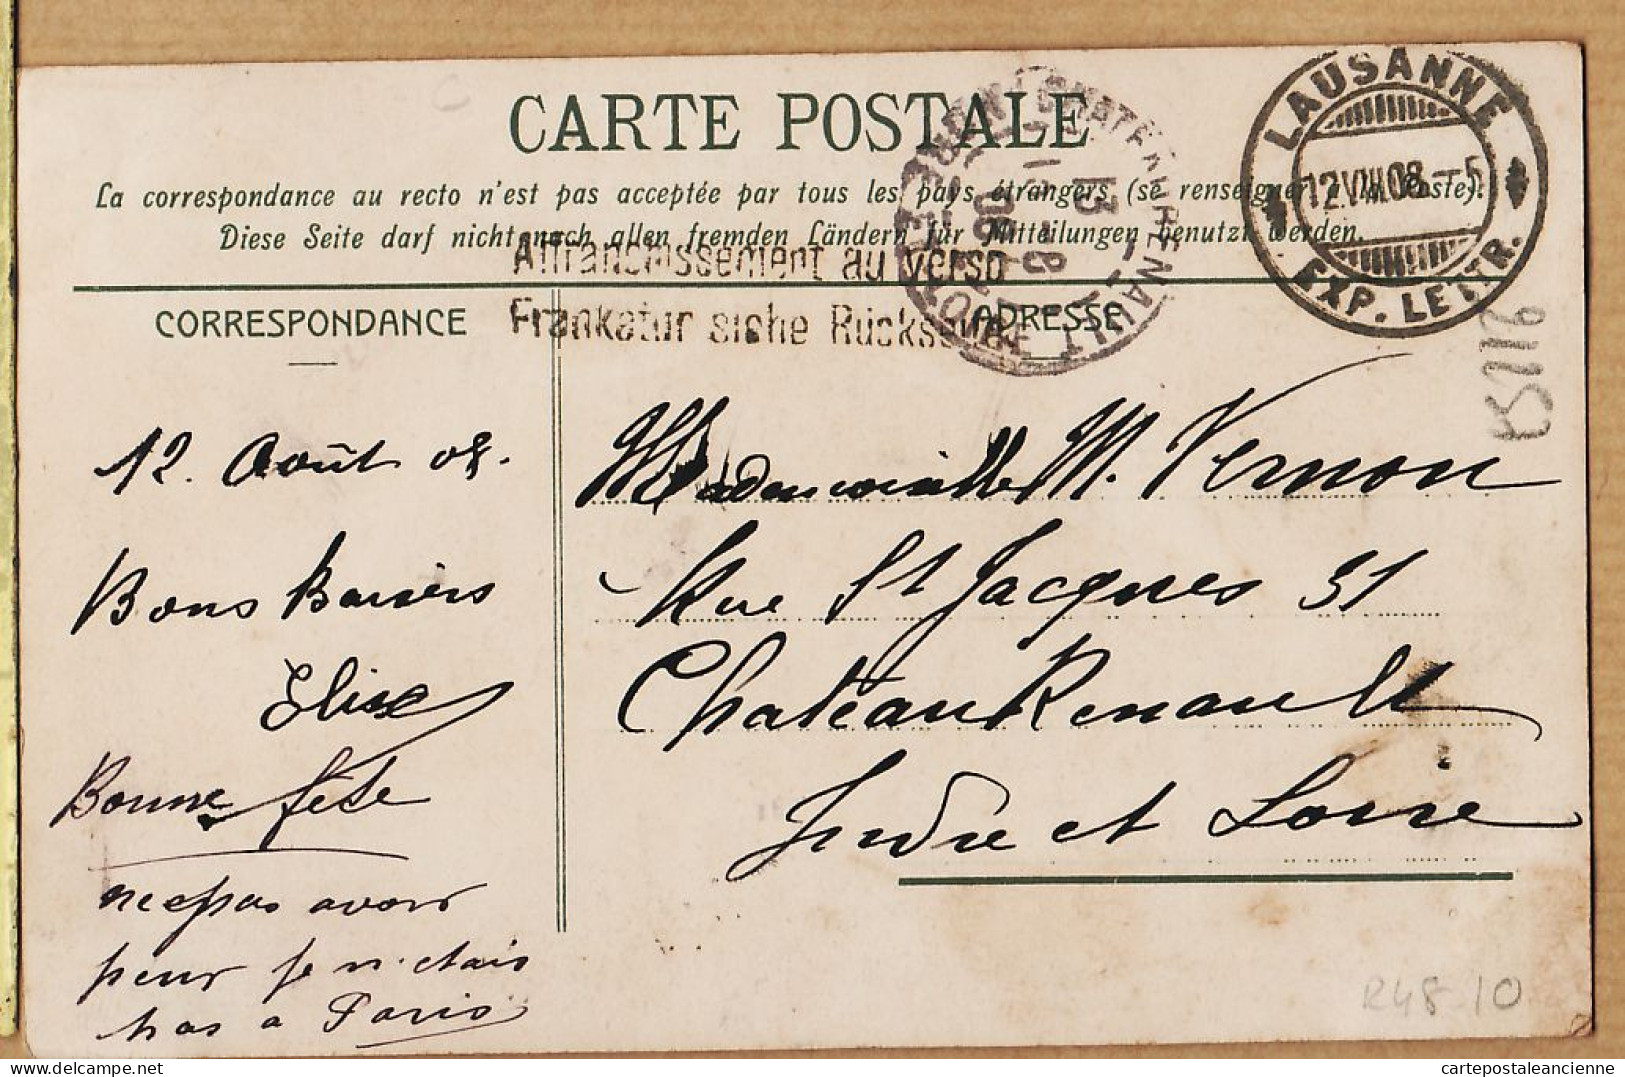 CARTE POSTALE
La correspondance au recto n'est pas acceptée par tous les pays étrangers (se renseigner à la Poste).
Diese Seite darf nicht nach allen fremden Ländern für Mitteilungen benutzt werden.
Affranchissement au verso
Frankatur siehe Rückseite
LAUSANNE
12.VIII.08.-5
EXP. LETTR.
CHATEAURENAULT
13 - 8
08
INDRE ET LOIRE
CORRESPONDANCE
ADRESSE
12. Août 08.
Bons Baisers
Elise
Bonne fête
ne pas avoir
peur je n'étais
pas a Paris
Mademoiselle M. Vernon
Rue St Jacques 31
Château Renault
Indre et Loire
R48-10
cartepostaleancienne
www.delcampe.net